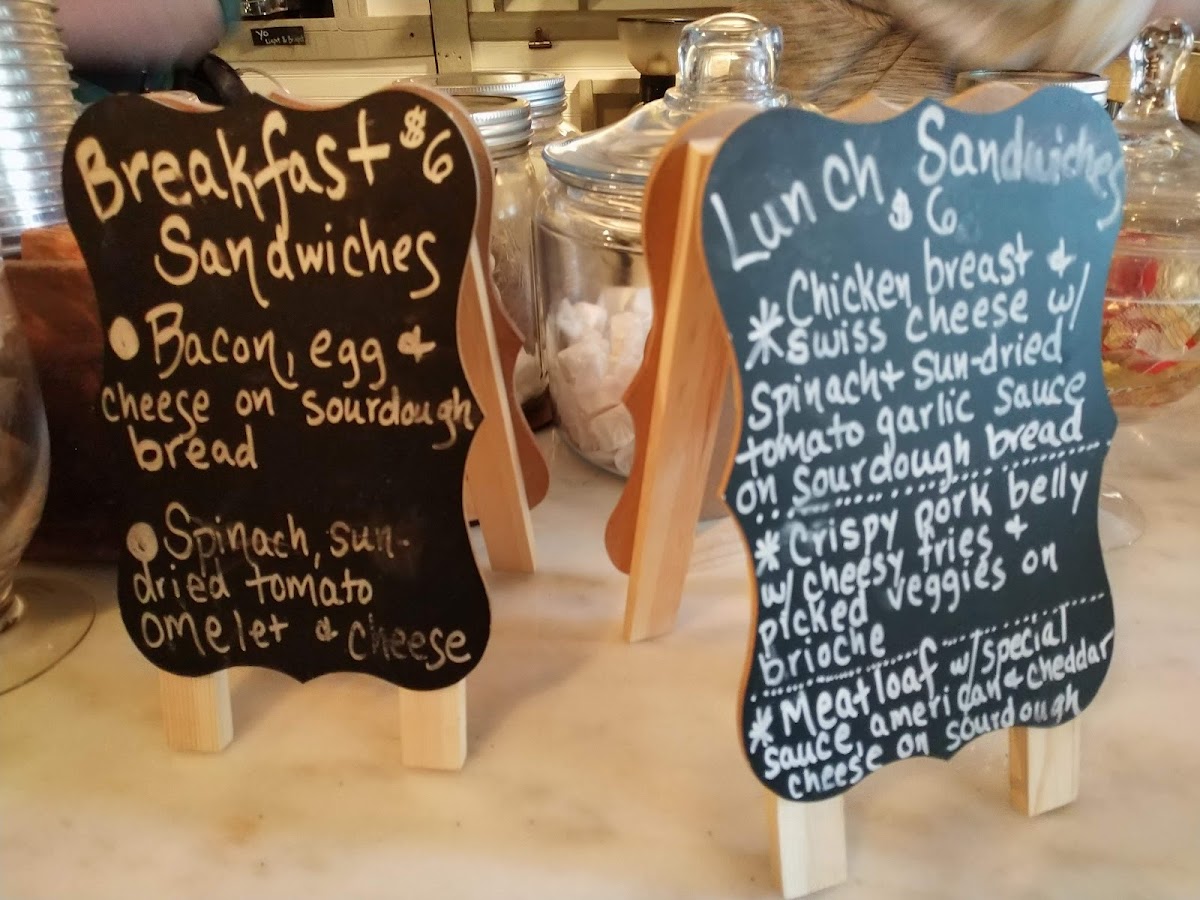 Breakfast $6
Sandwiches
Bacon, egg &
cheese on sourdough
bread
Spinach, sun-
dried tomato
omelet & cheese
Lunch Sandwiches
$6
* Chicken breast &
swiss cheese w/
spinach + sun-dried
tomato garlic sauce
on sourdough bread
* Crispy pork belly
w/ cheesy fries &
picked veggies on
brioche
* Meatloaf w/ special
sauce, american & cheddar
cheese on sourdough